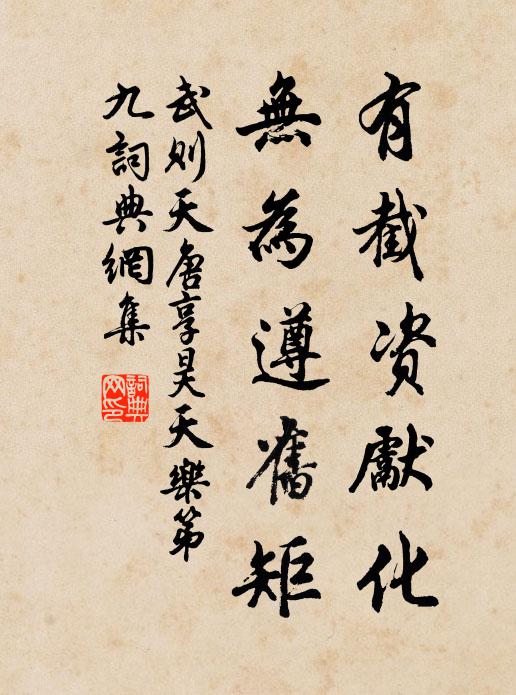 有截資獻化
無為遵舊矩
武則天唐享昊天樂第
九詞典網集
詞典
网印